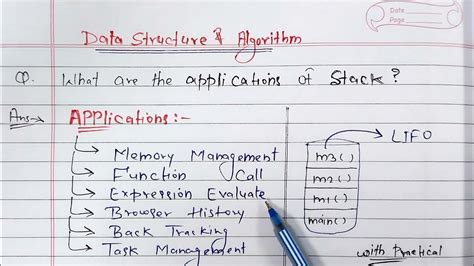 Date
Page
Data Structure & Algorithm
Q. What are the applications of Stack?
Ans→ APPlications:-
Memory Management
Function Call
Expression Evaluate
Browser History
Back Tracking
Task Management
LIFO
m3()
m2()
m1()
main()
with Practical